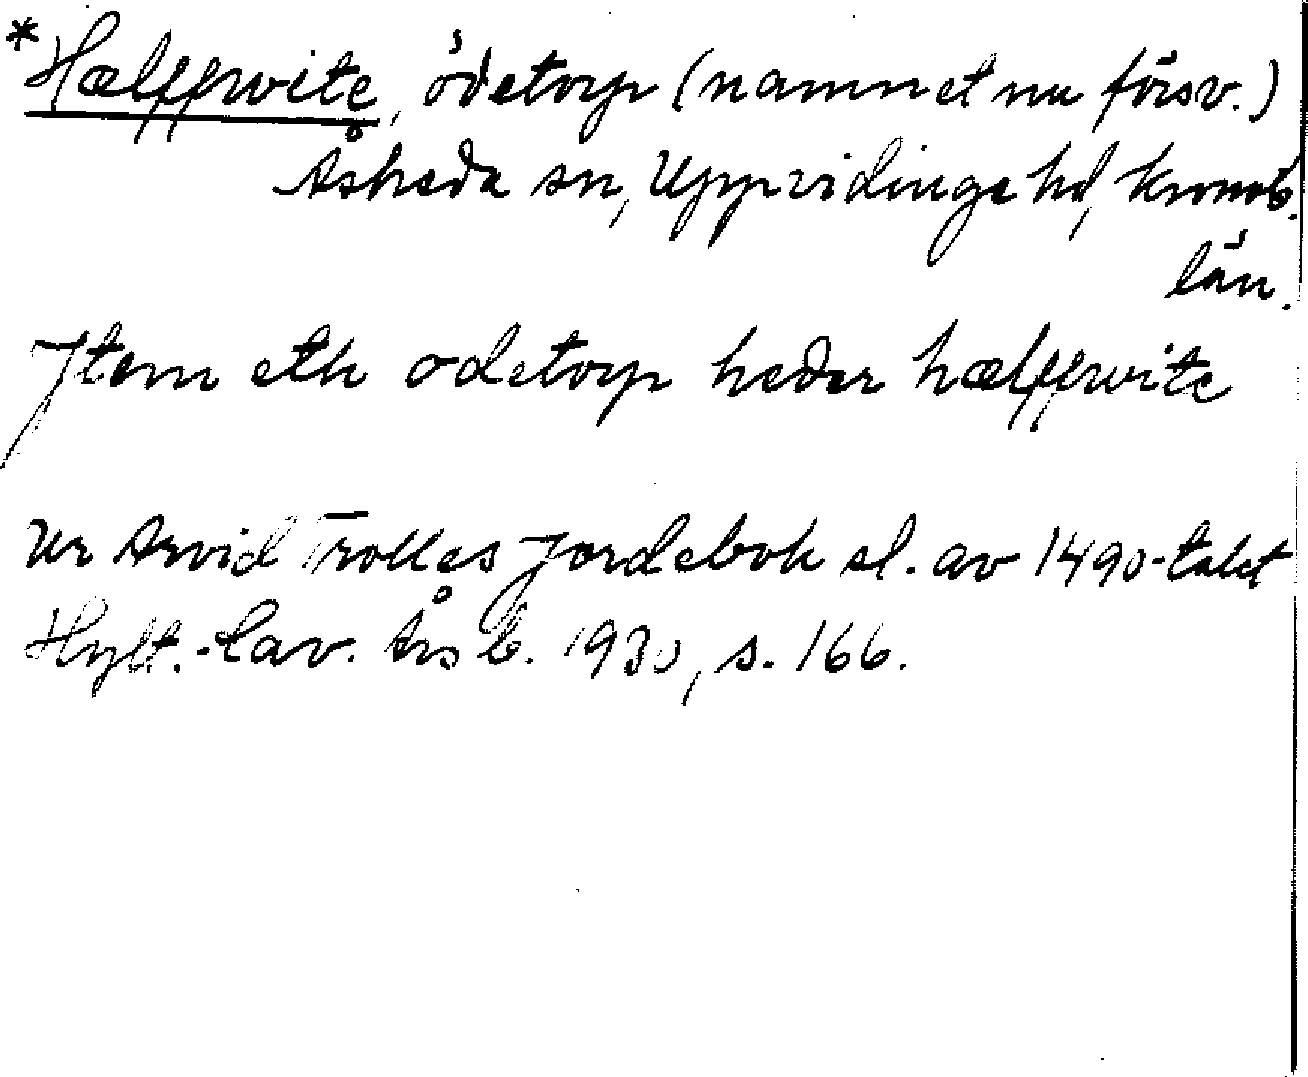 *Hælffwite, ödetorp (namnet nu försv.)
Åsheda sn, Uppvidinge hd, Kronob.
län.
Jtem eth odetorp heder hælffwite
Ur Arvid Trolles Jordebok sl. av 1490-talet
Hylt.-Cav. Årsb. 1930, s. 166.